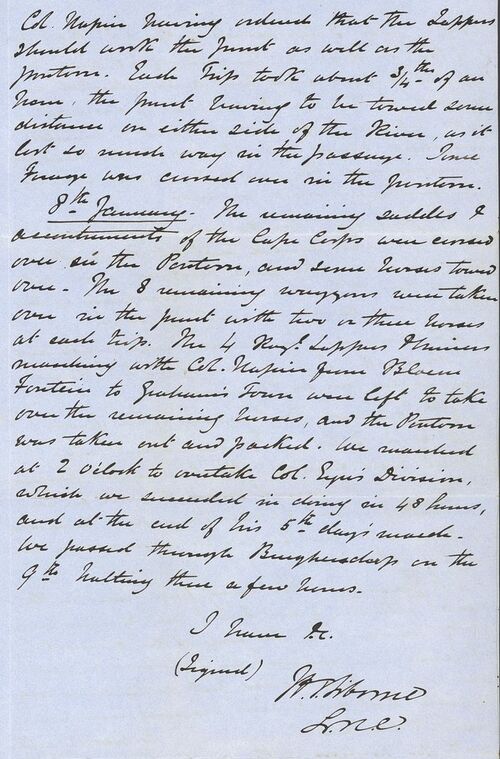 Col. Napier having ordered that the Sappers
should work the punt as well as the
pontoon. Each Trip took about 3/4ths of an
hour, the punt having to be towed some
distance on either side of the River, as it
lost so much way in the passage. Some
Forage was crossed over in the pontoon.
8th January. The remaining saddles &
accoutrements of the Cape Corps were crossed
over in the Pontoon, and some horses towed
over - The 8 remaining waggons were taken
over in the punt with two or three horses
at each trip. The 4 Royl. Sappers & Miners
marching with Col. Napier from Bloem
Fontein to Graham's Town were left to take
over the remaining horses, and the Pontoon
was taken out and packed. We marched
at 2 o'clock to overtake Col. Eyre's Division,
which we succeeded in doing in 48 hours,
and at the end of his 5th day's march -
We passed through Burghersdorp on the
9th halting there a few hours.
I have &c.
(Signed)
W. Siborne
Lt. R.E.